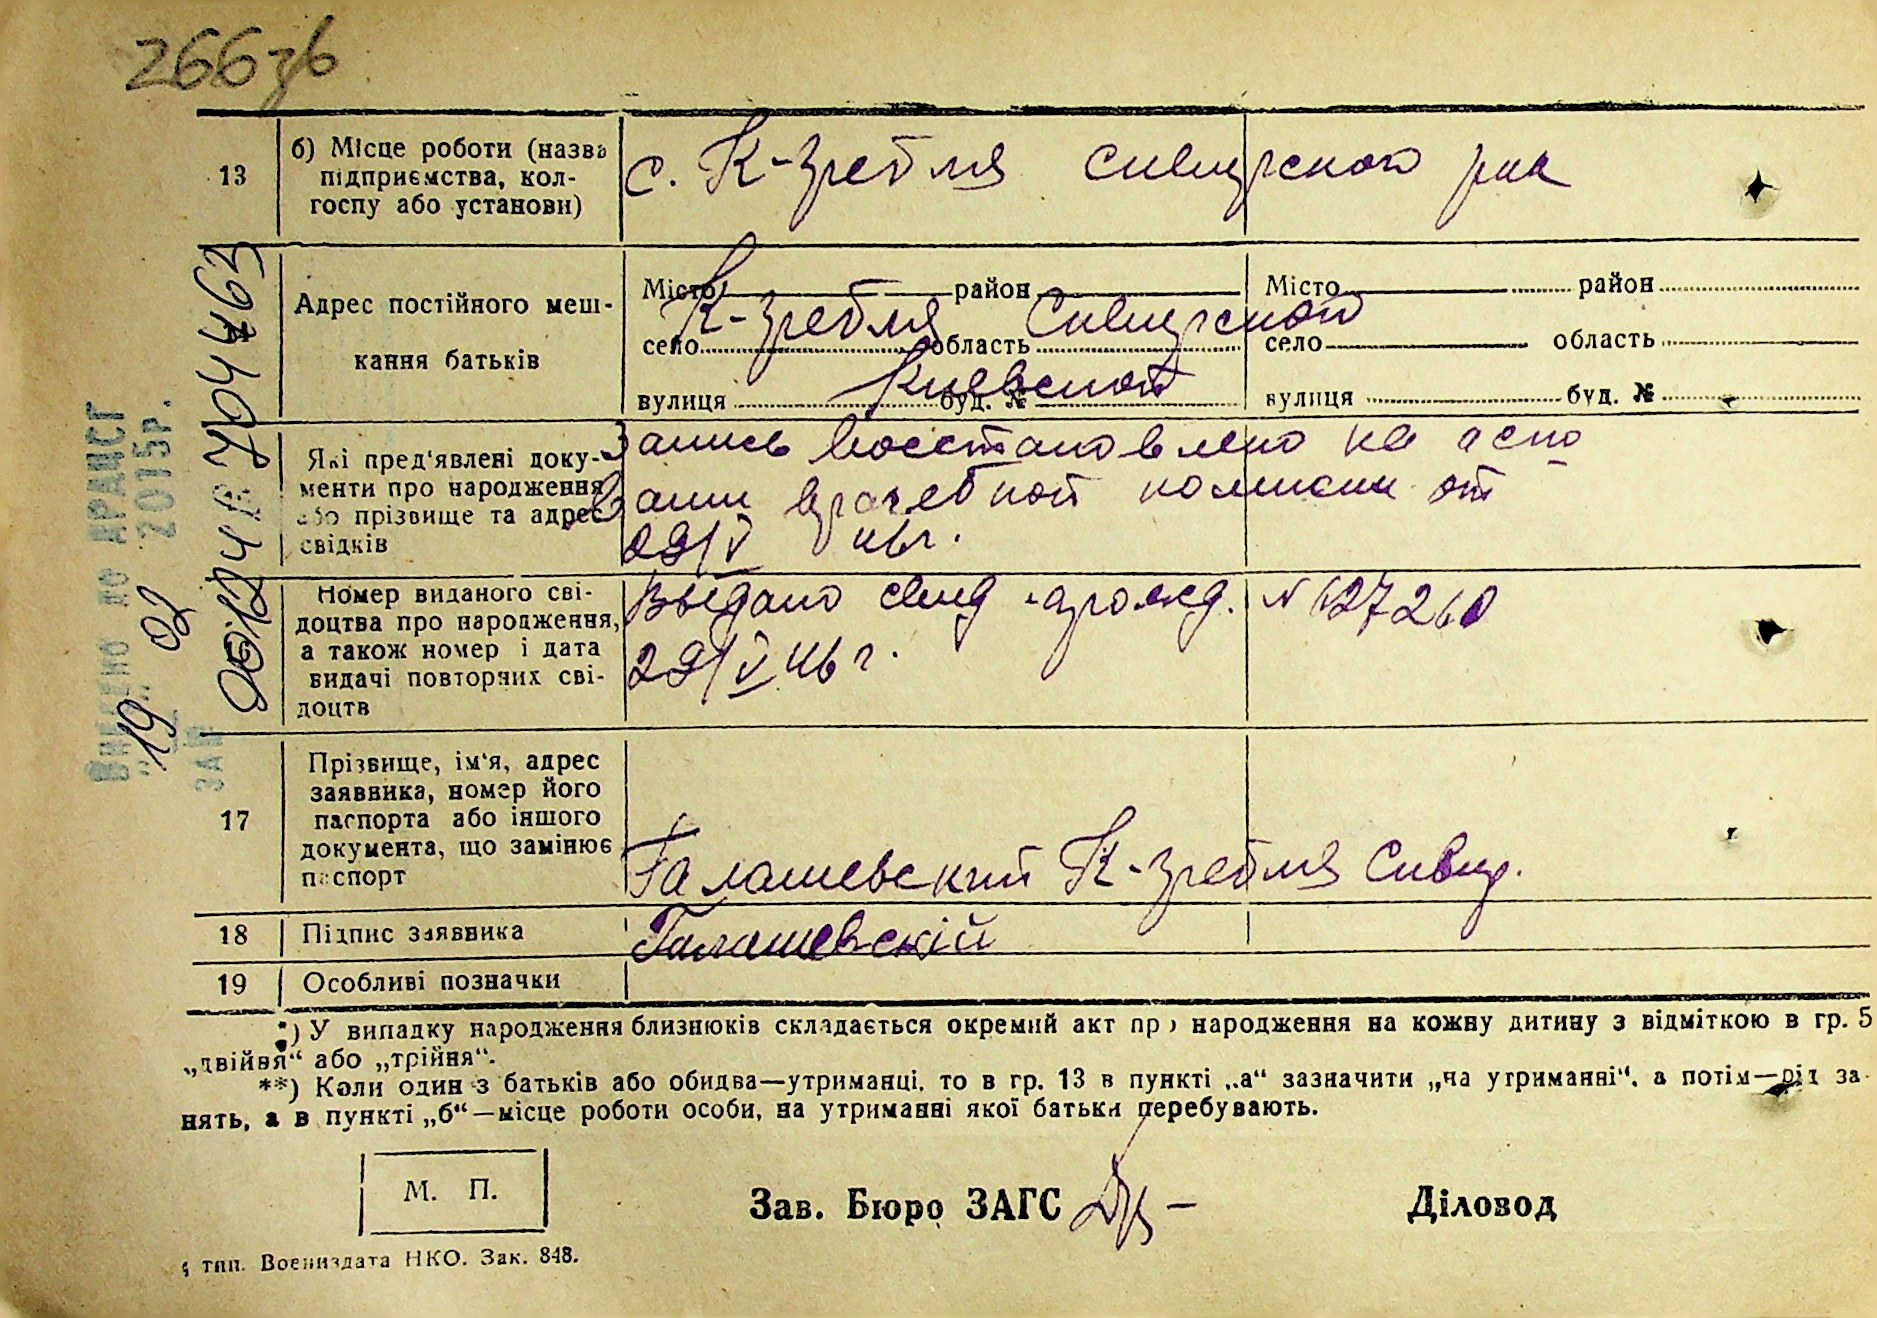 266зв
13
б) Місце роботи (назва
підприємства, кол-
госпу або установи)
с. К-Зребля Сквирского р-на
Адрес постійного меш-
кання батьків
Місто район
село область
вулиця буд. №
К-Зребля Сквирской
Киевской
Місто район
село область
вулиця буд. №
Які пред'явлені доку-
менти про народження
або прізвище та адрес
свідків
Запись восстановлено на осно
вании врачебной комиссии от
29/V 46г.
Номер виданого сві-
доцтва про народження,
а також номер і дата
видачі повторних сві-
доцтв
Выдано свид. о рожд. № 627260
29/V 46 г.
17
Прізвище, ім'я, адрес
заявника, номер його
паспорта або іншого
документа, що замінює
паспорт
Галашевский К-Зребля Сквир.
18
Підпис заявника
Галашевскій
19
Особливі позначки
*) У випадку народження близнюків складається окремий акт про народження на кожну дитину з відміткою в гр. 5
„двійня“ або „трійня“.
**) Коли один з батьків або обидва—утриманці, то в гр. 13 в пункті „а“ зазначити „на утриманні“, а потім—рід за-
нять, а в пункті „б“—місце роботи особи, на утриманні якої батьки перебувають.
М. П.
Зав. Бюро ЗАГС
Діловод
тип. Воениздата НКО. Зак. 848.
Внесено до ДРАЦСГ
"19" 02 2015р.
ЗА №
00124 704463